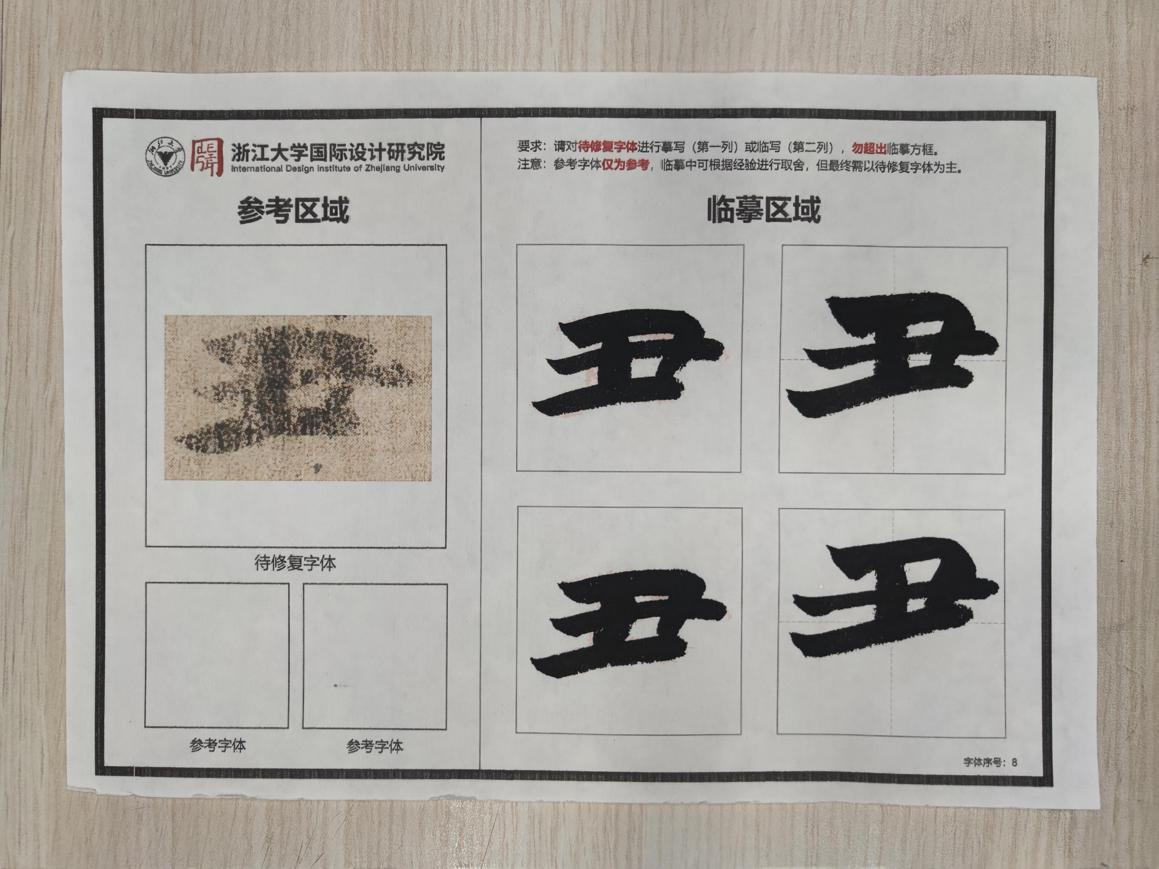 浙江大学国际设计研究院
International Design Institute of Zhejiang University
参考区域
待修复字体
参考字体
参考字体
要求：请对待修复字体进行摹写（第一列）或临写（第二列），勿超出临摹方框。
注意：参考字体仅为参考，临摹中可根据经验进行取舍，但最终需以待修复字体为主。
临摹区域
丑 丑
丑 丑
字体序号：8